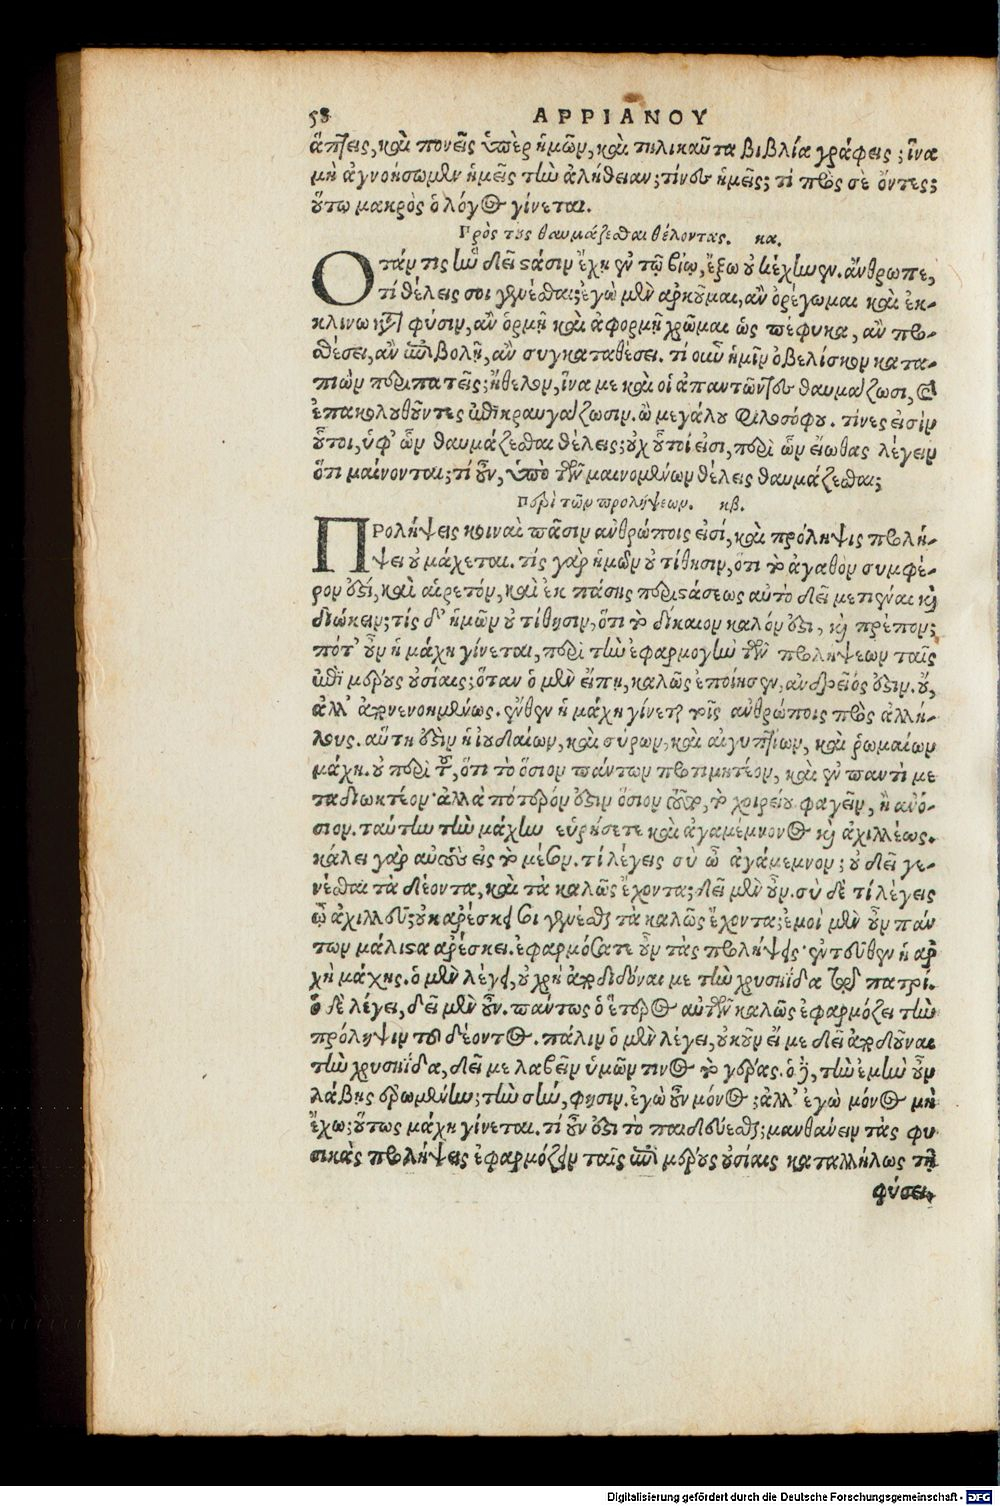 58 ΑΡΡΙΑΝΟΥ
ἅπτεις, καὶ πονεῖς ὑπὲρ ἡμῶν, καὶ τηλικαῦτα βιβλία γράφεις; ἵνα
μὴ ἀγνοήσωμεν ἡμεῖς τὴν ἀλήθειαν; τίνες ἡμεῖς; τί πρὸς σὲ ὄντες;
οὕτω μακρὸς ὁ λόγος γίνεται.
Πρὸς τοὺς θαυμάζεσθαι θέλοντας. κα.
Ὅτάν τις ἣν δεῖ στάσιν ἔχῃ ἐν τῷ βίῳ, ἔξω οὐ κέχηνεν. ἄνθρωπε,
τί θέλεις σοι γενέσθαι; ἐγὼ μὲν ἀρκοῦμαι, ἂν ὀρέγωμαι καὶ ἐκ-
κλίνω κατὰ φύσιν, ἂν ὁρμῇ καὶ ἀφορμῇ χρῶμαι ὡς πέφυκα, ἂν προ-
θέσει, ἂν ἐπιβολῇ, ἂν συγκαταθέσει. τί οὖν ἡμῖν ὀβελίσκον κατα-
πιὼν περιπατεῖς; ἤθελον, ἵνα με καὶ οἱ ἀπαντῶντες θαυμάζωσι, καὶ
ἐπακολουθοῦντες ἐπικραυγάζωσιν. ὢ μεγάλου φιλοσόφου. τίνες εἰσὶν
οὗτοι, ὑφ' ὧν θαυμάζεσθαι θέλεις; οὐχ οὗτοί εἰσι, περὶ ὧν εἴωθας λέγειν
ὅτι μαίνονται; τί οὖν, ὑπὸ τῶν μαινομένων θέλεις θαυμάζεσθαι;
Περὶ τῶν προλήψεων. κβ.
ΠΡΟΛΗΨΕΙς κοιναὶ πᾶσιν ἀνθρώποις εἰσί, καὶ πρόληψις προλή-
ψει οὐ μάχεται. τίς γὰρ ἡμῶν οὐ τίθησιν, ὅτι τὸ ἀγαθὸν συμφέ-
ρον ἐστί, καὶ αἱρετόν, καὶ ἐκ πάσης περιστάσεως αὐτὸ δεῖ μετιέναι καὶ
διώκειν; τίς δ' ἡμῶν οὐ τίθησιν, ὅτι τὸ δίκαιον καλόν ἐστι, καὶ πρέπον;
πότ' οὖν ἡ μάχη γίνεται, περὶ τὴν ἐφαρμογὴν τῶν προλήψεων ταῖς
ἐπὶ μέρους οὐσίαις; ὅταν ὁ μὲν εἴπῃ, καλῶς ἐποίησεν, ἀνδρεῖός ἐστιν. οὔ,
ἀλλ' ἀπονενοημένως. ἔνθεν ἡ μάχη γίνεται τοῖς ἀνθρώποις πρὸς ἀλλή-
λους. αὕτη ἐστὶν ἡ ἰουδαίων, καὶ σύρων, καὶ αἰγυπτίων, καὶ ῥωμαίων
μάχη. οὐ περὶ τοῦ, ὅτι τὸ ὅσιον πάντων προτιμητέον, καὶ ἐν παντὶ με
ταδιωκτέον· ἀλλὰ πότερόν ἐστιν ὅσιον τοῦτο, τὸ χοιρείου φαγεῖν, ἢ ἀνό-
σιον. ταύτην τὴν μάχην εὑρήσετε καὶ ἀγαμέμνονος καὶ ἀχιλλέως.
κάλει γὰρ αὐτοὺς εἰς τὸ μέσον. τί λέγεις σὺ ὦ ἀγάμεμνον; οὐ δεῖ γε-
νέσθαι τὰ δέοντα, καὶ τὰ καλῶς ἔχοντα; δεῖ μὲν οὖν. σὺ δὲ τί λέγεις
ὦ ἀχιλλεῦ; οὐκ ἀρέσκει σοι γενέσθαι τὰ καλῶς ἔχοντα; ἐμοὶ μὲν οὖν πάν
των μάλιστα ἀρέσκει. ἐφαρμόσατε οὖν τὰς προλήψεις· ἐντεῦθεν ἡ ἀρ
χὴ μάχης. ὁ μὲν λέγει, οὐ χρὴ ἀποδιδόναι με τὴν χρυσηΐδα τῷ πατρί.
ὁ δὲ λέγει, δεῖ μὲν οὖν. πάντως ὁ ἕτερος αὐτῶν καλῶς ἐφαρμόζει τὴν
πρόληψιν τοῦ δέοντος. πάλιν ὁ μὲν λέγει, οὐκοῦν εἴ με δεῖ ἀποδοῦναι
τὴν χρυσηΐδα, δεῖ με λαβεῖν ὑμῶν τινος τὸ γέρας. ὁ δὲ, τὴν ἐμὴν οὖν
λάβῃς ἐρωμένην; τὴν σήν, φησιν. ἐγὼ οὖν μόνος; ἀλλ' ἐγὼ μόνος μὴ
ἔχω; οὕτως μάχη γίνεται. τί οὖν ἐστι τὸ παιδεύεσθαι; μανθάνειν τὰς φυ
σικὰς προλήψεις ἐφαρμόζειν ταῖς ἐπὶ μέρους οὐσίαις καταλλήλως τῇ
φύσει,
Digitalisierung gefördert durch die Deutsche Forschungsgemeinschaft - DFG